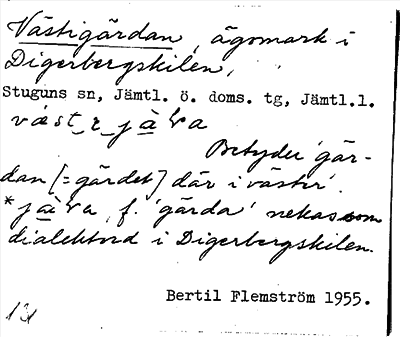 Västigärdan, ägomark i
Digerbergskilen,
Stuguns sn, Jämtl. ö. doms. tg, Jämtl.l.
Betyder 'gär-
dan [= gärdet] där i väster'.
f. 'gärda' nekas som
dialektord i Digerbergskilen.
Bertil Flemström 1955.